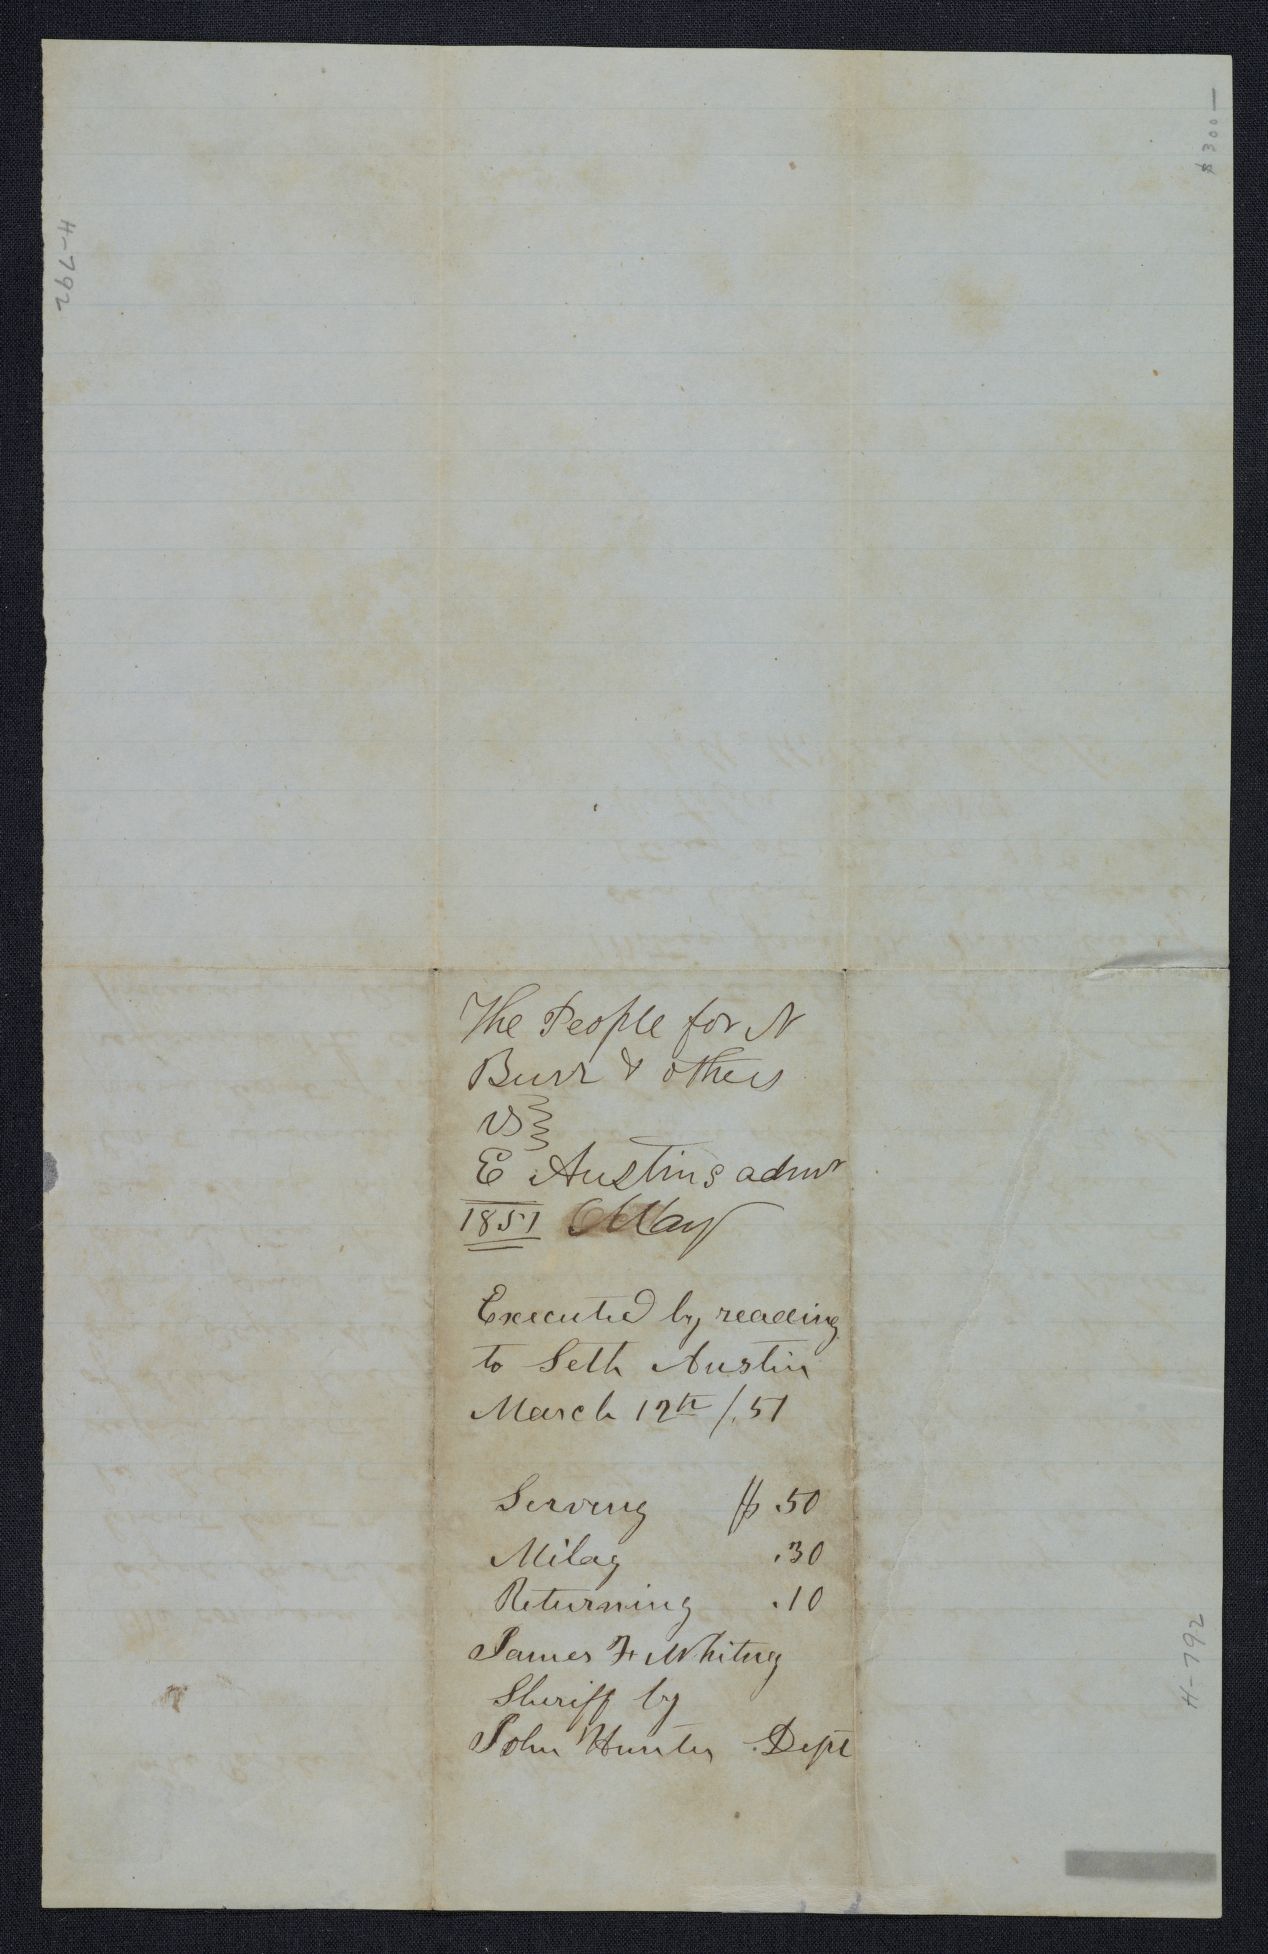 $300—
H-792
The People for N
Burr & others
vs
E Austins admr
1851 May
Executed by reading
to Seth Austin
March 12th /.51
Serving $ .50
Milag .30
Returning .10
James F Whitng
Sheriff by
John Hunter Dept
H-792